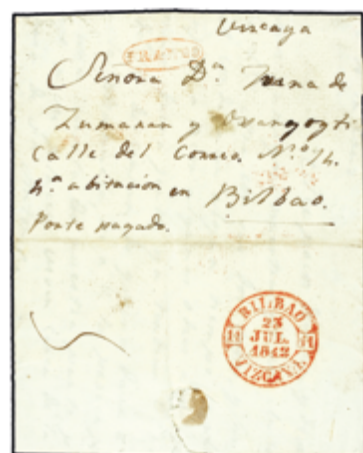 Vizcaya
FRANCO
Señora Dª. Juana de
Zumaran y
Calle del Correo. Nº 14.
4ª abitacion en Bilbao.
Porte pagado.
BILBAO
23
JUL.
1842
VIZCAYA.